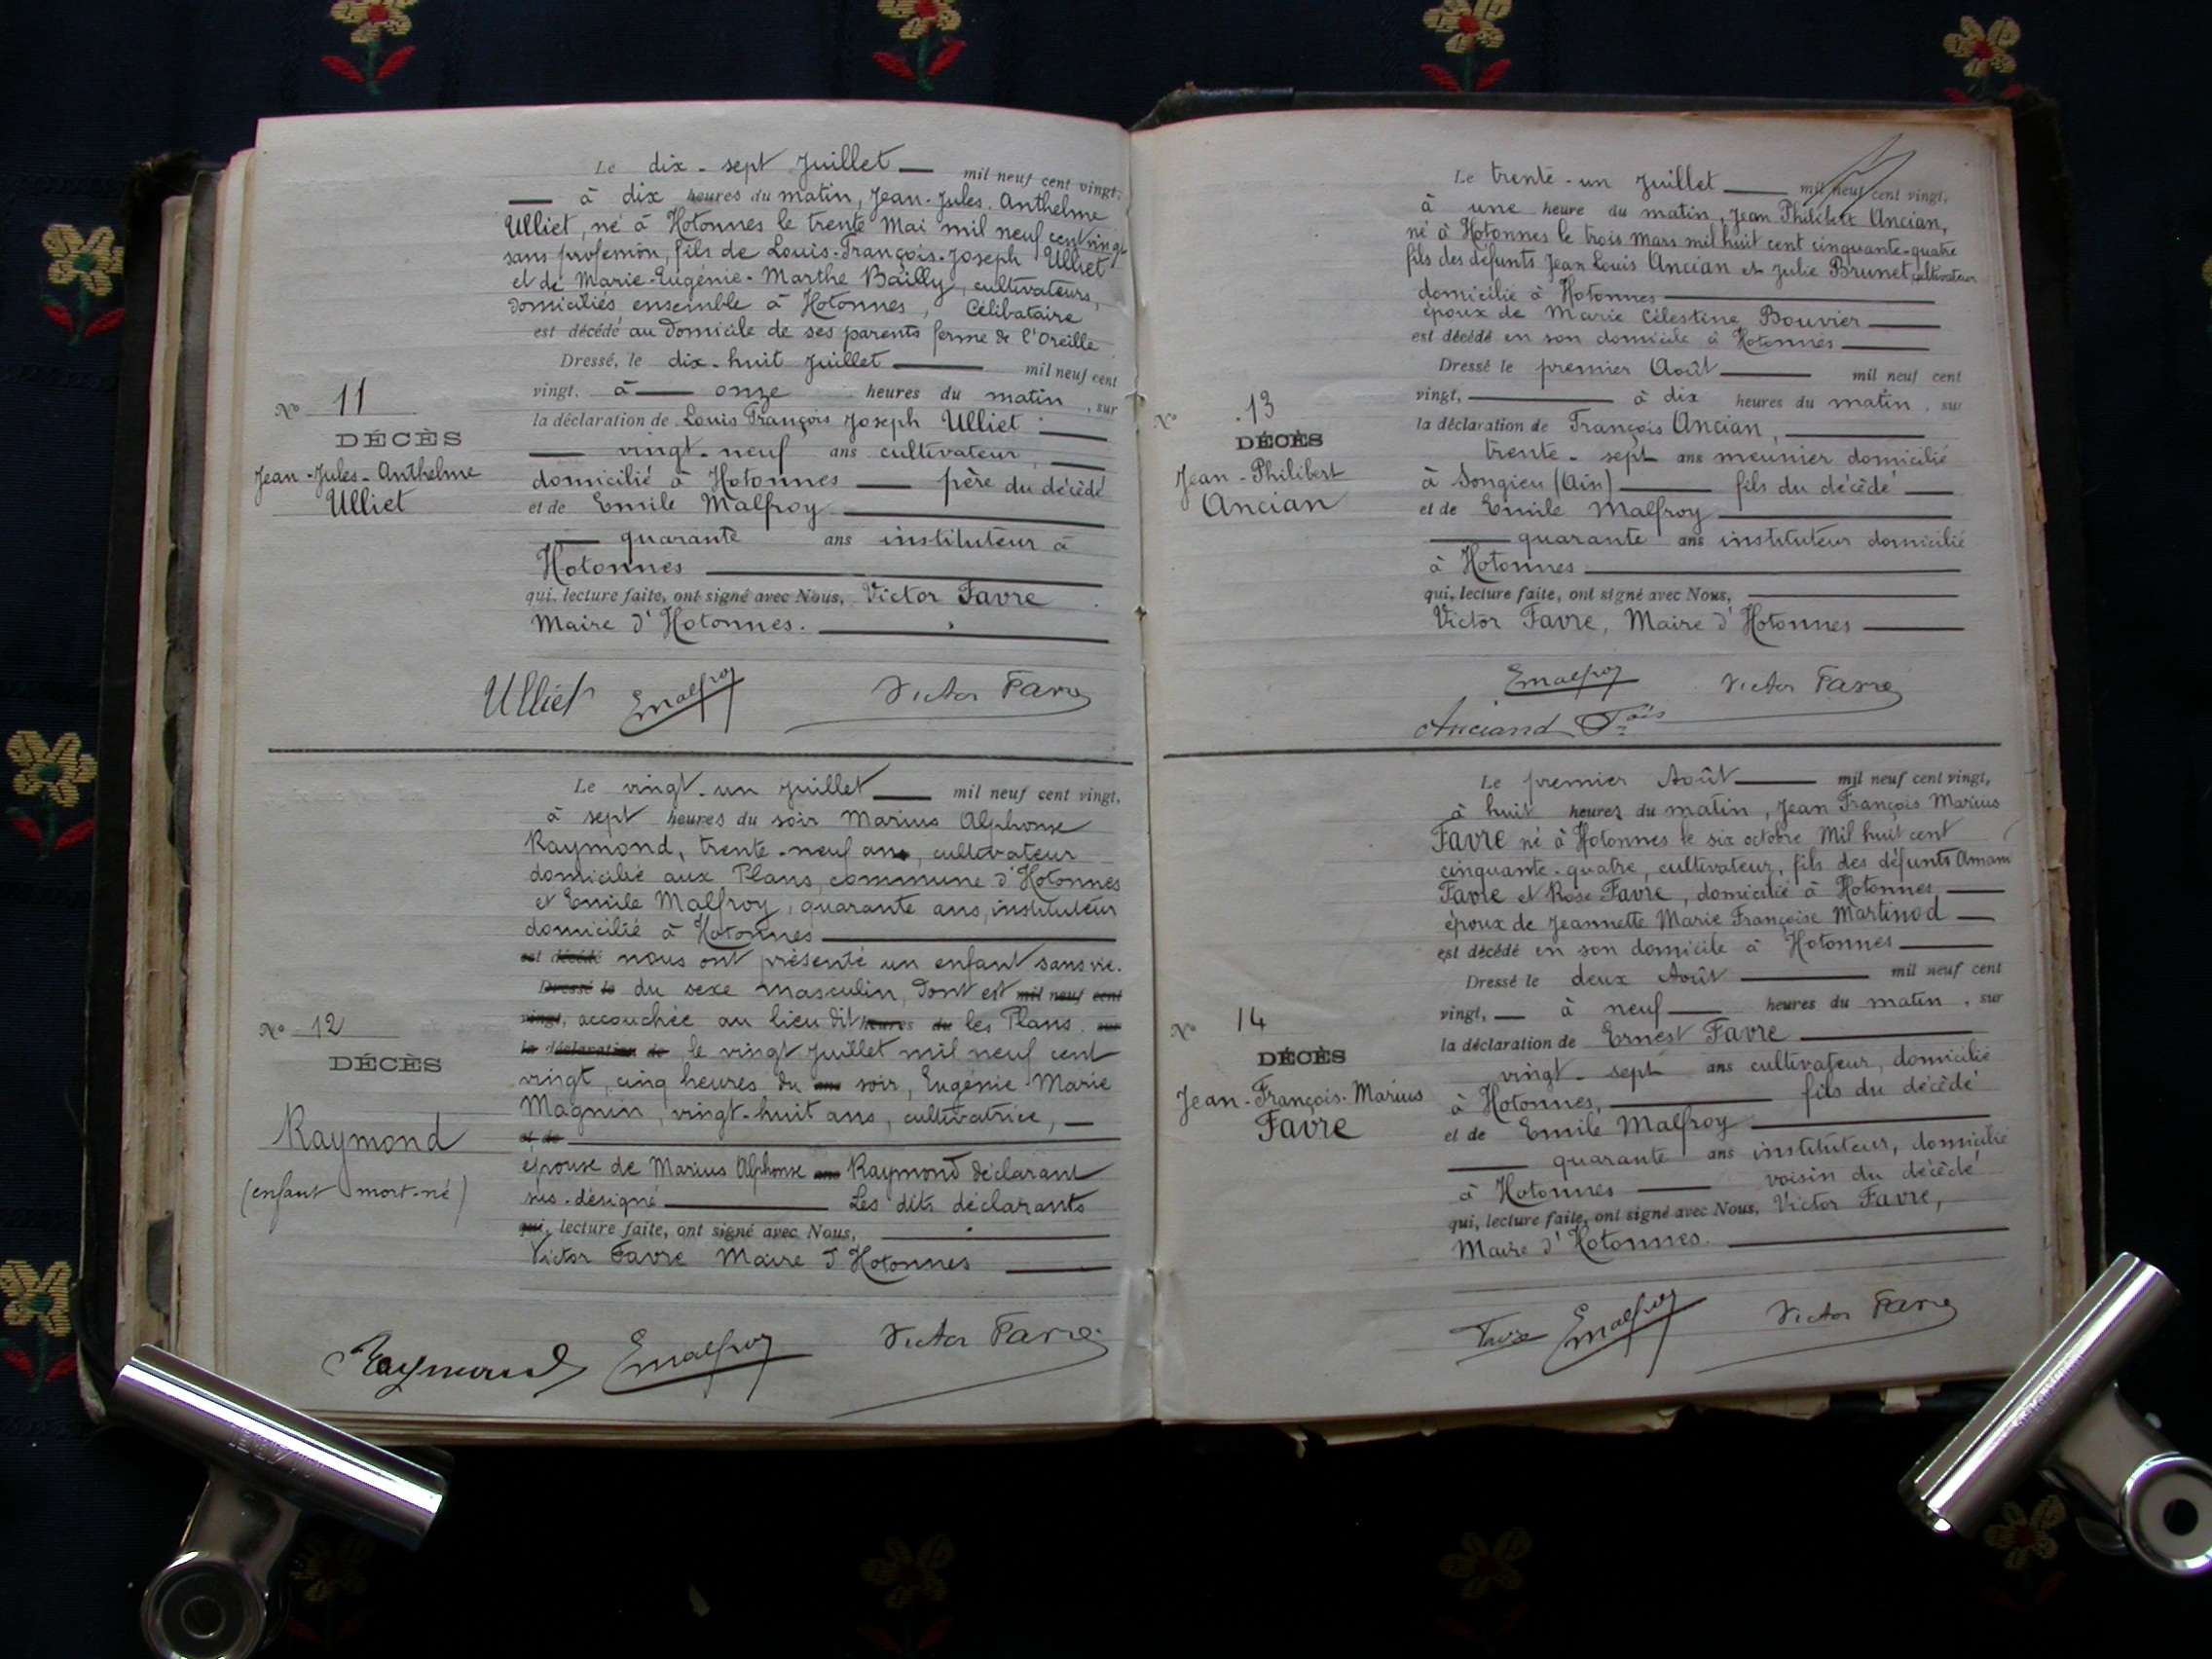 Le dix-sept Juillet — mil neuf cent vingt,
— à dix heures du matin, Jean-Jules-Anthelme
Ulliet, né à Hotonnes le trente Mai mil neuf cent vingt
sans profession, fils de Louis-François-Joseph Ulliet
et de Marie-Eugénie-Marthe Bailly, cultivateurs,
domiciliés ensemble à Hotonnes, Célibataire
est décédé au domicile de ses parents ferme de l'Oreille
Dressé, le dix-huit Juillet — mil neuf cent
vingt, à — onze heures du matin, sur
la déclaration de Louis François Joseph Ulliet —
— vingt-neuf ans cultivateur, —
domicilié à Hotonnes — père du décédé
et de Emile Malfroy —
— quarante ans instituteur à
Hotonnes —
qui, lecture faite, ont signé avec Nous, Victor Favre
Maire d'Hotonnes. —
N° 11
DÉCÈS
Jean-Jules-Anthelme
Ulliet
Ulliet Emalfroy Victor Favre
Le vingt-un Juillet — mil neuf cent vingt,
à sept heures du soir Marius Alphonse
Raymond, trente-neuf ans, cultivateur
domicilié aux Plans, commune d'Hotonnes
et Emile Malfroy, quarante ans, instituteur
domicilié à Hotonnes —
est décédé nous ont présenté un enfant sans vie.
Dressé le du sexe masculin, dont est mil neuf cent
vingt, accouchée au lieu dit heures du les Plans. sur
la déclaration de le vingt Juillet mil neuf cent
vingt, cinq heures du ans soir, Eugénie Marie
Magnin, vingt-huit ans, cultivatrice, —
et de —
épouse de Marius Alphonse ans Raymond déclarant
sus-désigné — Les dits déclarants
qui, lecture faite, ont signé avec Nous, —
Victor Favre Maire d'Hotonnes —
N° 12
DÉCÈS
Raymond
(enfant mort-né)
Raymond Emalfroy Victor Favre
Le trente-un Juillet — mil neuf cent vingt,
à une heure du matin, Jean Philibert Ancian,
né à Hotonnes le trois Mars mil huit cent cinquante-quatre
fils des défunts Jean Louis Ancian et Julie Brunet, cultivateur
domicilié à Hotonnes —
époux de Marie Célestine Bouvier —
est décédé en son domicile à Hotonnes —
Dressé le premier Août — mil neuf cent
vingt, — à dix heures du matin, sur
la déclaration de François Ancian, —
trente-sept ans meunier domicilié
à Songieu (Ain) — fils du décédé —
et de Emile Malfroy —
— quarante ans instituteur domicilié
à Hotonnes —
qui, lecture faite, ont signé avec Nous, —
Victor Favre, Maire d'Hotonnes —
N° 13
DÉCÈS
Jean-Philibert
Ancian
Emalfroy Victor Favre
Anciand Fçois
Le premier Août — mil neuf cent vingt,
à huit heures du matin, Jean François Marius
Favre né à Hotonnes le six octobre Mil huit cent
cinquante-quatre, cultivateur, fils des défunts
Favre et Rose Favre, domicilié à Hotonnes, —
époux de Jeannette Marie Françoise Martinod —
est décédé en son domicile à Hotonnes —
Dressé le deux Août — mil neuf cent
vingt, — à neuf — heures du matin, sur
la déclaration de Ernest Favre —
vingt-sept ans cultivateur, domicilié
à Hotonnes, — fils du décédé
et de Emile Malfroy —
— quarante ans instituteur, domicilié
à Hotonnes — voisin du décédé
qui, lecture faite, ont signé avec Nous, Victor Favre,
Maire d'Hotonnes. —
N° 14
DÉCÈS
Jean-François-Marius
Favre
Favre Emalfroy Victor Favre